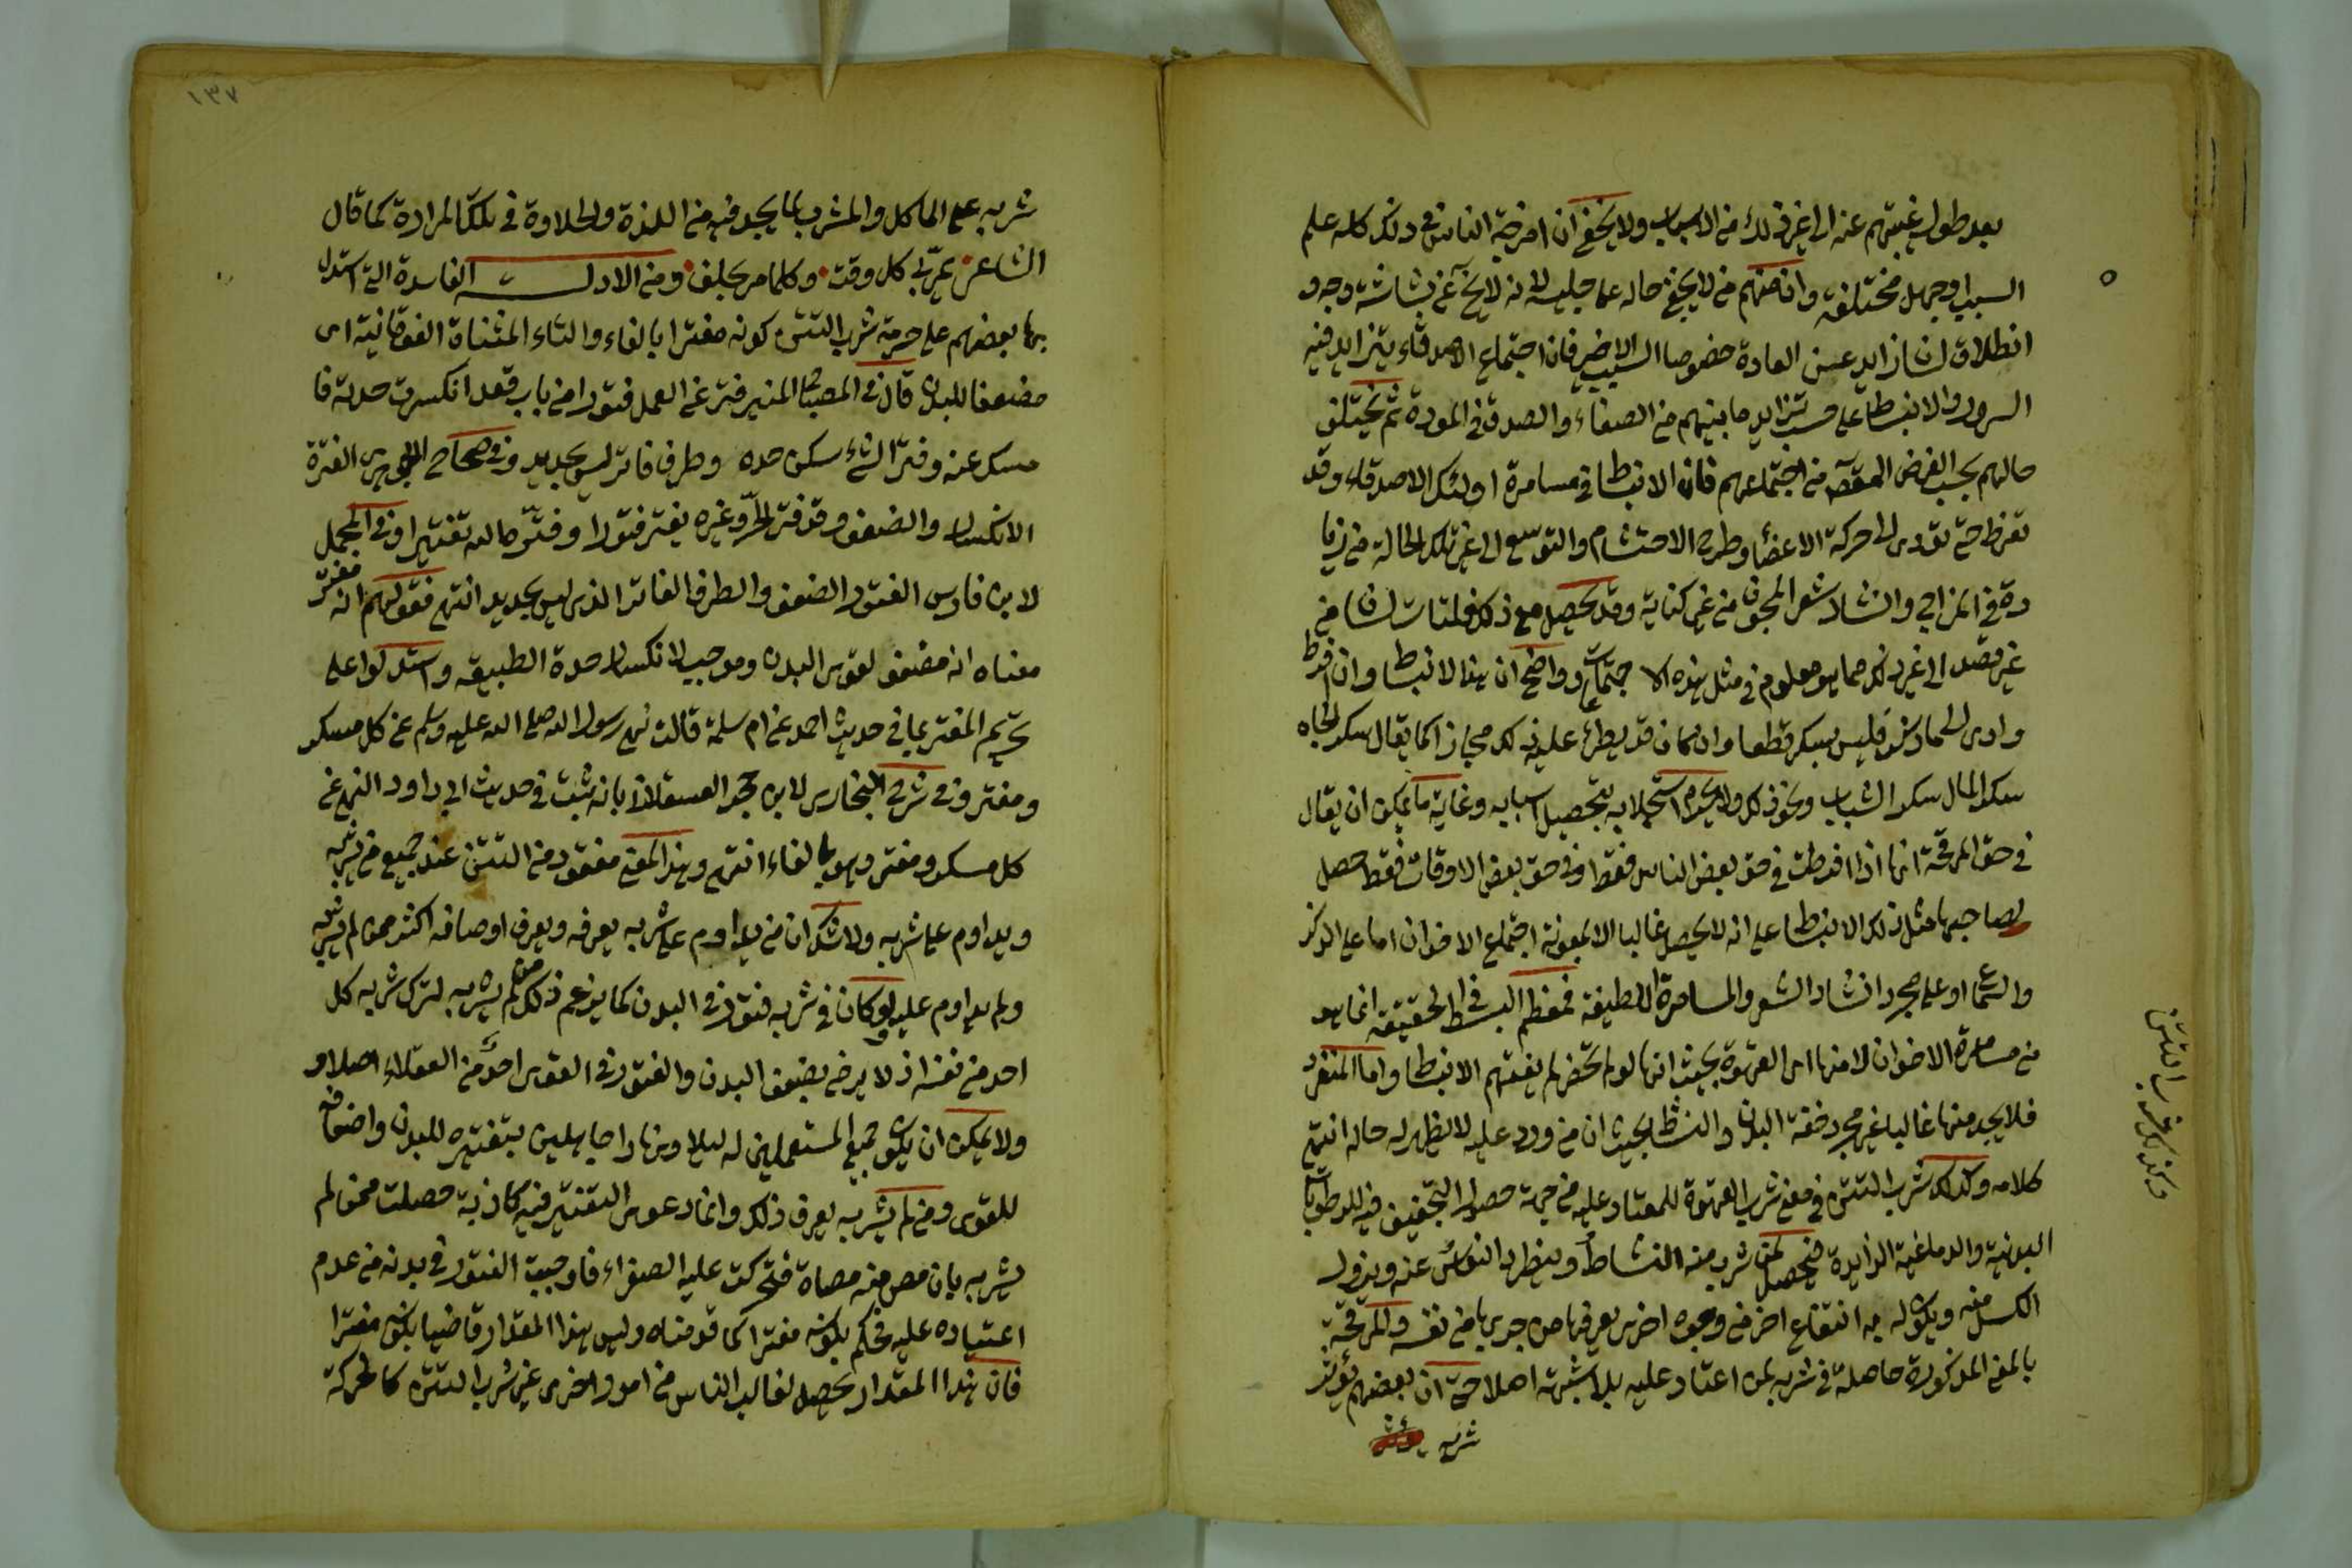 بعد طول غيبتهم عنه الى غير ذلك من الاسباب ولا يخفى ان امزجة الناس في ذلك كله علم
السبب او جهل مختلفة وان منهم من لا يخفى حاله على جليسه لانه لا يخ عن بشاشة وجه و
انطلاق لسان زايد عن العادة خصوصا السبب الاخير فان اجتماع الاصدقاء يتزايد فيه
السرور والانبساط على حسب تزايد ما بينهم من الصفاء والصدق في المودة ثم يختلف
حالهم بحسب الغرض المقصد من اجتماعهم فان الانبساط في مسامرة اولئك الاصدقاء وقد
تفرط حتى تؤدى الى حركة الاعضاء وطرح الاحتشام والتوسع الى غير تلك الحالة من زيا
دة في المزاح وانشاد شعر المجون من غير كناية وقد يحصل مع ذلك فلتات لسان من
غير قصد الى غير ذلك مما هو معلوم في مثل هذه الاجتماعات وواضح ان هذا الانبساط وان افرط
وادى الى ما ذكر فليس بسكر قطعا وان كان قد يطلق عليه ذلك مجازا كما يقال سكر الجاه
سكر المال سكر الشباب ونحو ذلك ولا يحرم استجلابه بتحصيل اسبابه وغاية ما يمكن ان يقال
في حق المرقحة انها اذا افرطت في حق بعض الناس فقط او في حق بعض الاوقات فقط حصل
لصاحبها مثل ذلك الانبساط على انه لا يحصل غالبا الا بمعونة اجتماع الاخوان اما على الذكر
والسماع او على مجرد انشاد الشعر والمسامرة اللطيفة فمعظم البسط في الحقيقة انما هو
من مسامرة الاخوان لا منها اى القهوة بحيث انها لو لم تحضر لم يفتهم الانبساط واما المنفرد
فلا يجد منها غالبا غير مجرد خفة البدن والنشاط بحيث ان من ورد عليه لا يظهر له حاله انتهى
كلامه وكذلك شرب التتن في معنى شرب القهوة للمعتاد عليه من جهة حصول التجفيف فيه للرطوبات
البدنية والدماغية الزايدة فيحصل لمن شرب منه النشاط وينطرد النعاس عنه ويزول
الكسل منه ويكون له به انتفاع اخر من وجوه اخرى يعرفها من جربها من نفسه والمرقحة
بالمعنى المذكورة حاصلة في شربه لمن اعتاد عليه بلا شبهة اصلا حتى ان بعضهم يؤثر
شربه
وكذلك شرب التتن
١٣٧
شربه على الماكل والمشرب لما يجد فيه من اللذة والحلاوة في تلك المرارة كما قال
الشاعر يمر بى كل وقت وكلما مر يحلف ومن الادلة الفاسدة التى استدل
بها بعضهم على حرمة شرب التتن كونه مفترا بالفاء والتاء المثناة الفوقانية اى
مضعفا للبدن قال في المصباح المنير فتر عن العمل فتورا من باب قعد انكسرت حدته فا
مسك عنه وفتر الشئ سكن حده وطرف فاتر ليس بحديد وفي صحاح الجوهرى الفترة
الانكسار والضعف وقد فتر الحر وغيره يفتر فتورا وفتره الله تفتيرا وفي المجمل
لابن فارس الفتور الضعف والطرف الفاتر الذى ليس بحديد انتهى فقولهم انه مفتر
معناه انه مضعف لقوى البدن وموجب لانكسار حدة الطبيعة واستدلوا على
تحريم المفتر بما في حديث احمد عن ام سلمة قالت نهى رسول الله صلى الله عليه وسلم عن كل مسكر
ومفتر وفي شرح البخارى لابن حجر العسقلانى بانه ثبت في حديث ابى داود النهى عن
كل مسكر ومفتر وهو بالفاء انتهى وهذا المعنى مفقود من التتن عند جميع من يشربه
ويداوم على شربه ولا شك ان من يداوم على شربه يعرفه ويعرف اوصافه اكثر ممن لم يشربه
ولم يداوم عليه ولو كان في شربه فتور في البدن كما يزعم ذلك من لم يشربه لترك شربه كل
احد من نفسه اذ لا يرضى بضعف البدن والفتور في القوى احد من العقلاء اصلا و
ولا يمكن ان يكون جميع المستعملين له ليلا ونهارا جاهلين بتفتيره للبدن واضعافه
للقوى ومن لم يشربه يعرف ذلك وانما دعوى التفتير فيه كاذبة حصلت ممن لم
يشربه بان مص منه مصاة فتحركت عليه الصفراء فاوجبت الفتور في بدنه من عدم
اعتياده عليه فحكم بكونه مفترا كما قدمناه وليس هذا المقدار قاضيا بكونه مفترا
فان هذا المقدار يحصل لغالب الناس من امور اخرى غير شرب التتن كالحركة